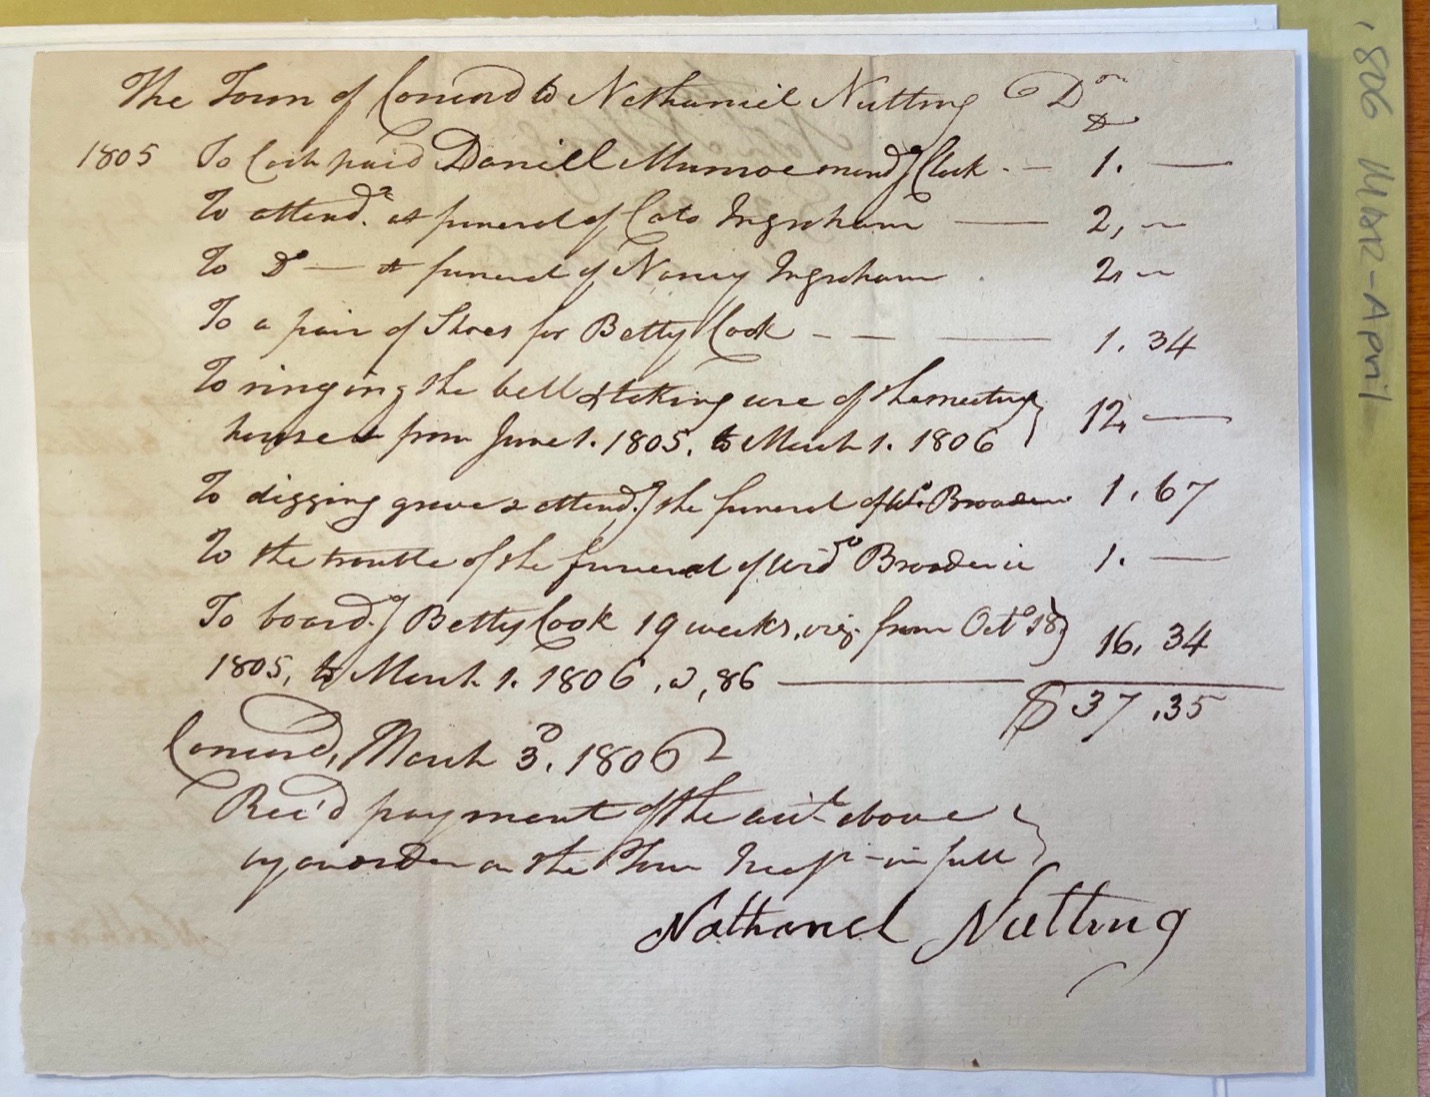 The Town of Concord to Nathaniel Nutting Dr
$
1805 To Cash paid Daniell Munroe mendg Clock - — 1. —
To attendce at funeral of Cato Ingraham — 2, —
To Do — at funeral of Nancy Ingraham . 2, —
To a pair of Shoes for Betty Cook — — — 1. 34
To ringing the bell & taking care of the meeting
house from June 1. 1805. to March 1. 1806 } 12, —
To digging grave & attendg the funeral of Wd. 1. 67
To the trouble of the funeral of Wido 1. —
To boardg Betty Cook 19 weeks, viz. from Octo 18, } 16. 34
1805, to March 1. 1806 , ,86 —
$ 37 .35
Concord, March 3d. 1806
Rec'd payment of the acct above }
by an order on the Town Treasr in full
Nathanel Nutting
1806 Mar-April